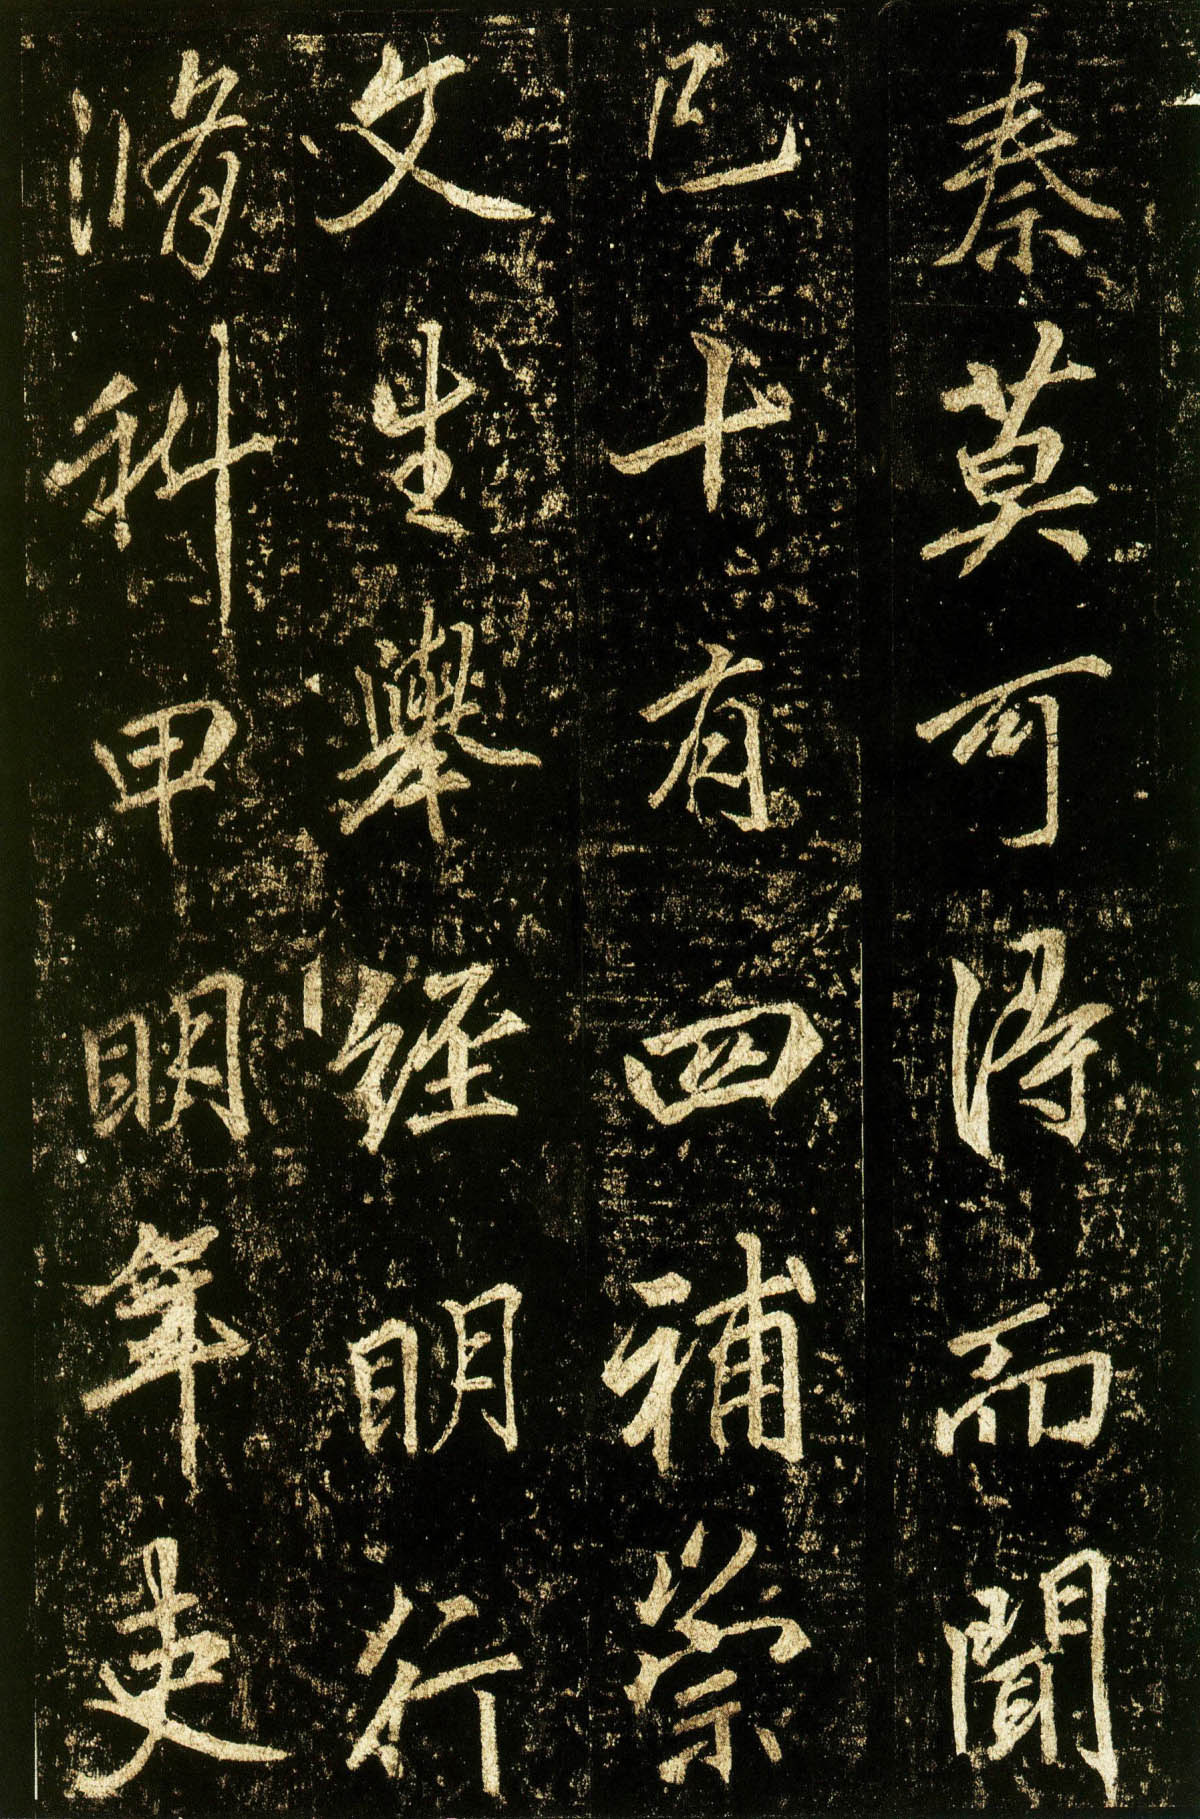 泰莫可得而聞
已十有四補崇
文生舉經明行
脩科甲明年吏